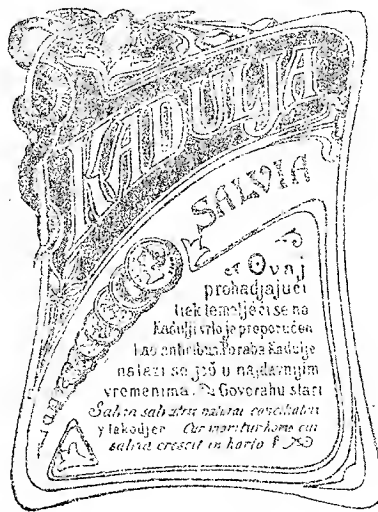 KADULJA
SALVIA
Ovaj
prohadjajući
liek temeljeći se na
Kadulji vrlo je preporučen
kao antiribus. Poraba Kadulje
nalazi se još u najdavnijim
vremenima. Govorahu stari
Salvia salvatrix naturae conciliatrix
y takodjer Cur moritur homo cui
salvia crescit in horto ?